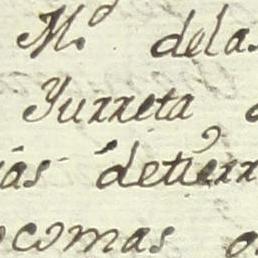 M.º dela
Yurreta
ás detierr
comas o